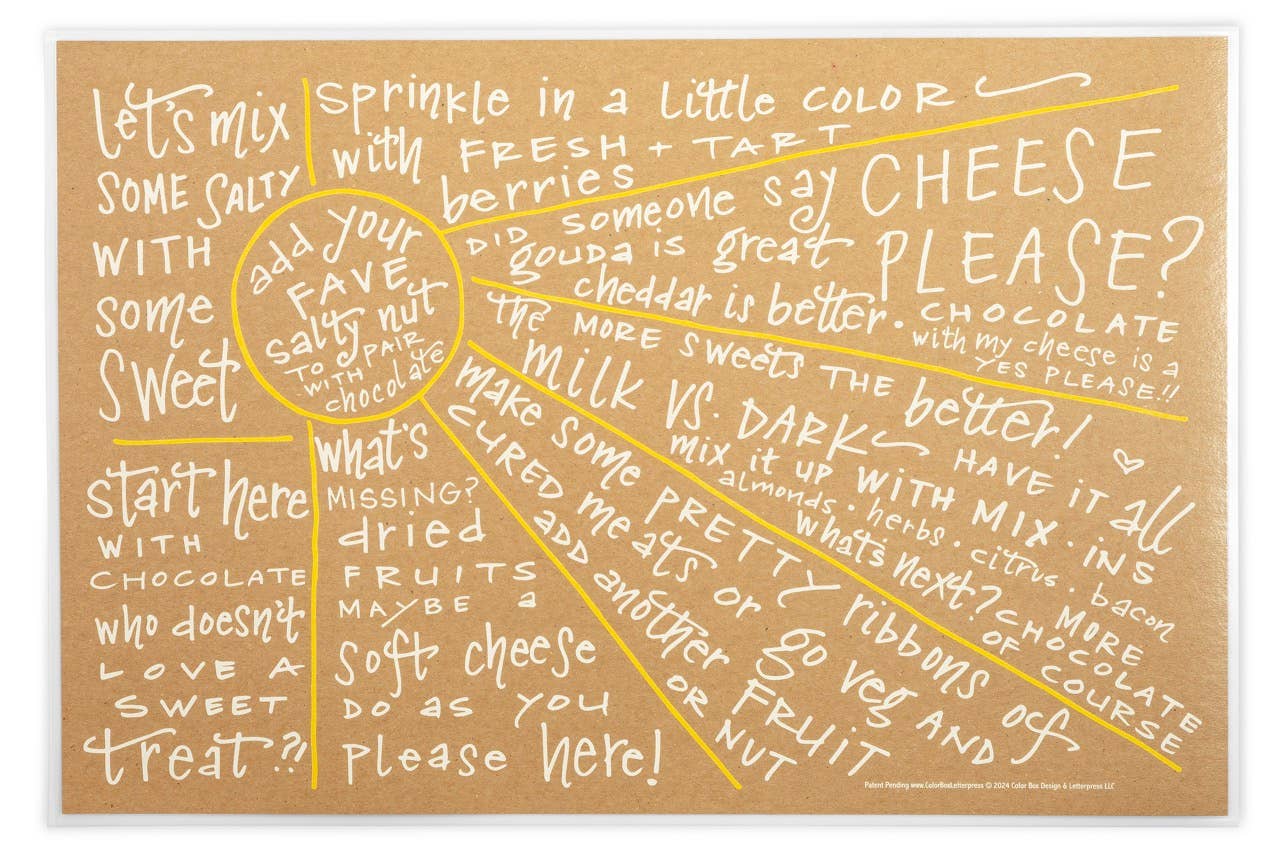 let's mix
SOME SALTY
WITH
some
sweet
sprinkle in a little COLOR
with FRESH + TART
berries
add your
FAVE
salty nut
TO PAIR
WITH
chocolate
DID someone say CHEESE
gouda is great PLEASE?
cheddar is better.
CHOCOLATE
with my cheese is a
YES PLEASE!!
the MORE sweets THE better!
milk vs. DARK HAVE it all
mix it up WITH MIX.INS
almonds. herbs. citrus. bacon
what's next? MORE
CHOCOLATE
OF COURSE
make some PRETTY ribbons of
CURED meats or go veg AND
ADD another FRUIT
OR NUT
start here
WITH
CHOCOLATE
who doesn't
LOVE A
SWEET
treat?!
what's
MISSING?
dried
FRUITS
MAYBE a
soft cheese
DO as YOU
please here!
Patent Pending www.ColorBoxLetterpress © 2024 Color Box Design & Letterpress LLC